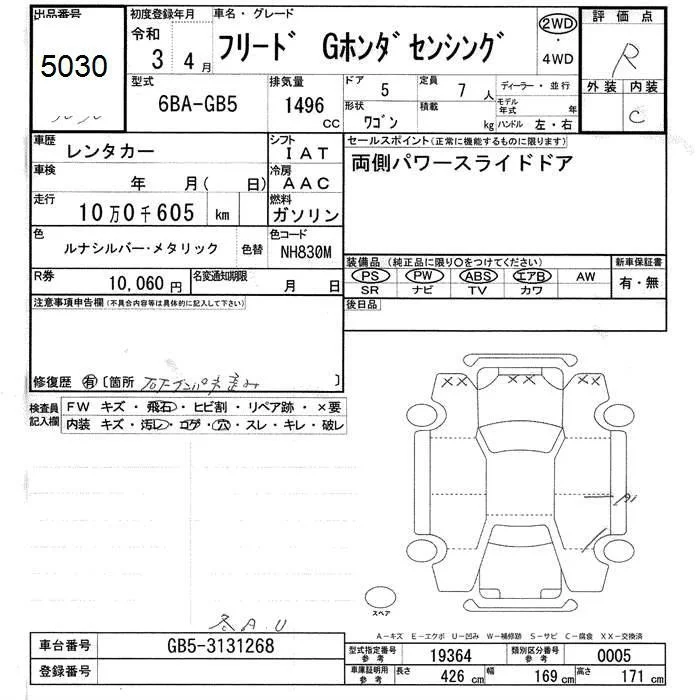 出品番号 初度登録年月 車名・グレード 評価点
5030 令和 3 4月 フリード Gホンダセンシング 2WD・4WD R
外装 内装
C
型式 排気量 ドア 5 定員 7人 ディーラー・並行
6BA-GB5 1496cc 形状 ワゴン 積載 kg モデル年式 年
ハンドル 左・右
車歴 レンタカー シフト IAT セールスポイント(正常に機能するものに限ります)
車検 年 月( 日) 冷房 AAC 両側パワースライドドア
走行 10万0千605 km 燃料 ガソリン
色 ルナシルバー・メタリック 色替 色コード NH830M
装備品(純正品に限り○をつけてください) 新車保証書
PS PW ABS エアB AW 有・無
SR ナビ TV カワ
R券 10,060円 名変通知期限 月 日
後日品
注意事項申告欄(不具合内容等は具体的に記入して下さい)
修復歴 有 〔箇所 〕
検査員記入欄 FW キズ・飛石・ヒビ割・リペア跡・×要
内装 キズ・汚レ・コゲ・穴・スレ・キレ・破レ
XX XX
A1
スペア
A.U
A-キズ E-エクボ U-凹み W-補修跡 S-サビ C-腐食 XX-交換済
車台番号 GB5-3131268 型式指定番号 参考 19364 類別区分番号 参考 0005
登録番号 車庫証明用 参考 長さ 426cm 幅 169cm 高さ 171cm